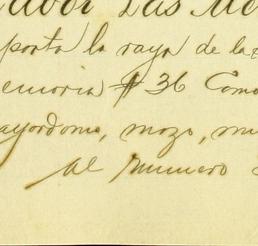 Las Me
porta la raya de la
emoria # 36 Como
ayordomo, mozo, mu
al numero